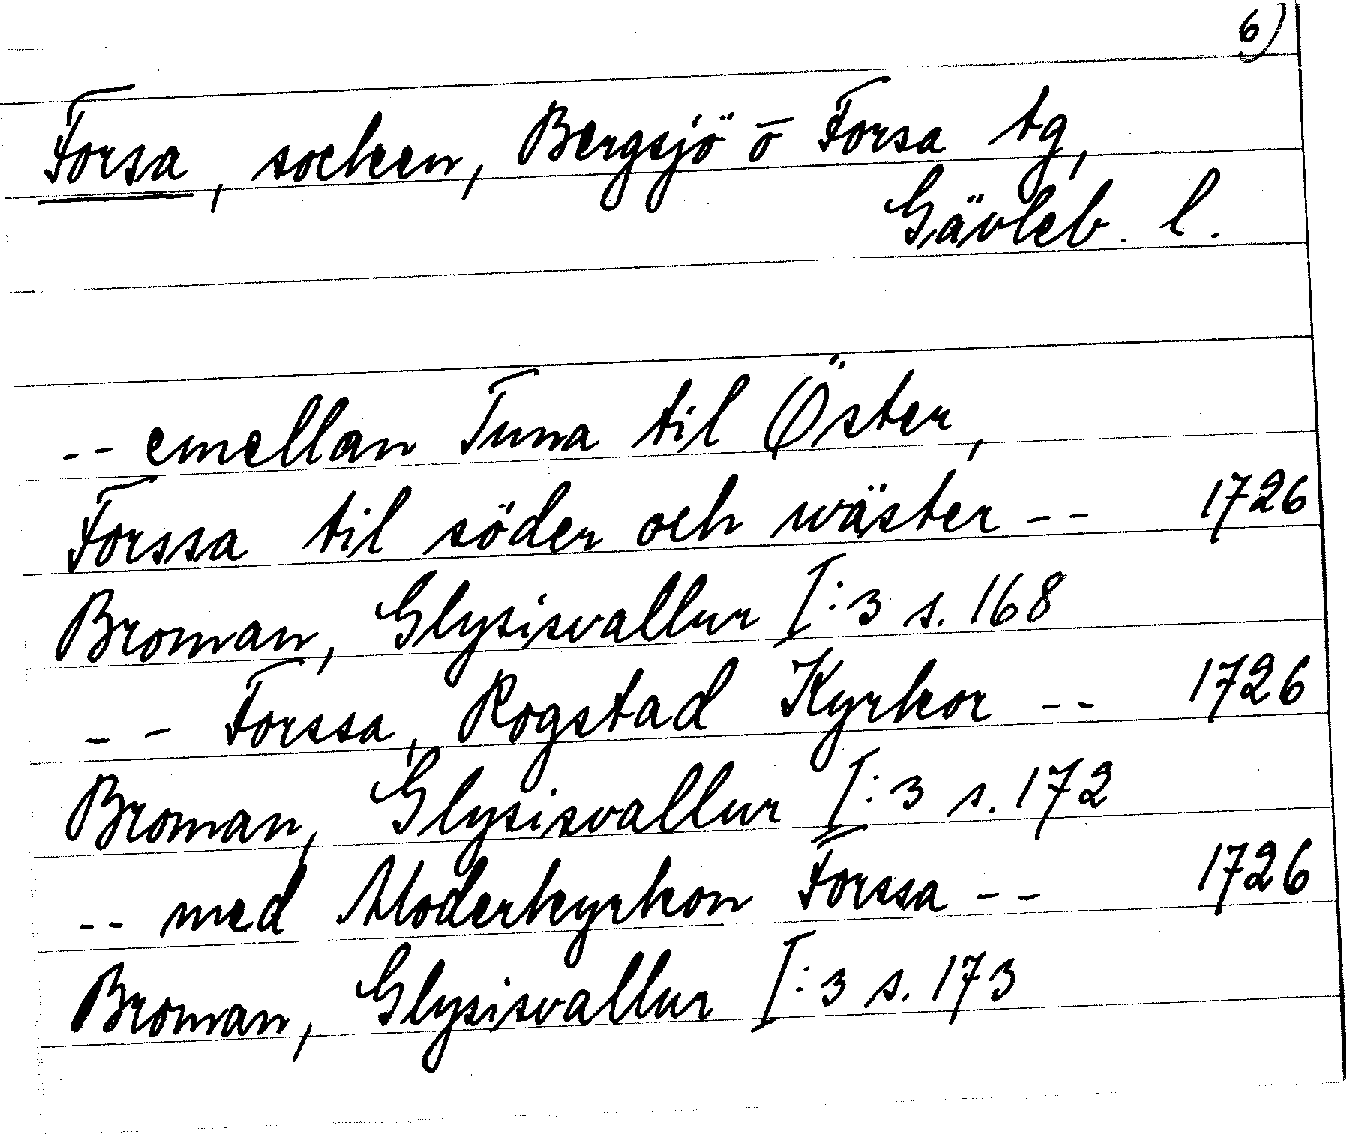 6)
Forsa, socken, Bergsjö o Forsa tg,
Gävleb. l.
-- emellan Tuna til Öster,
Forssa til söder och wäster -- 1726
Broman, Glysisvallur I:3 s. 168
-- Forssa, Rogstad Kyrkor -- 1726
Broman, Glysisvallur I:3 s. 172
-- med Moderkyrkon Forssa -- 1726
Broman, Glysisvallur I:3 s. 173